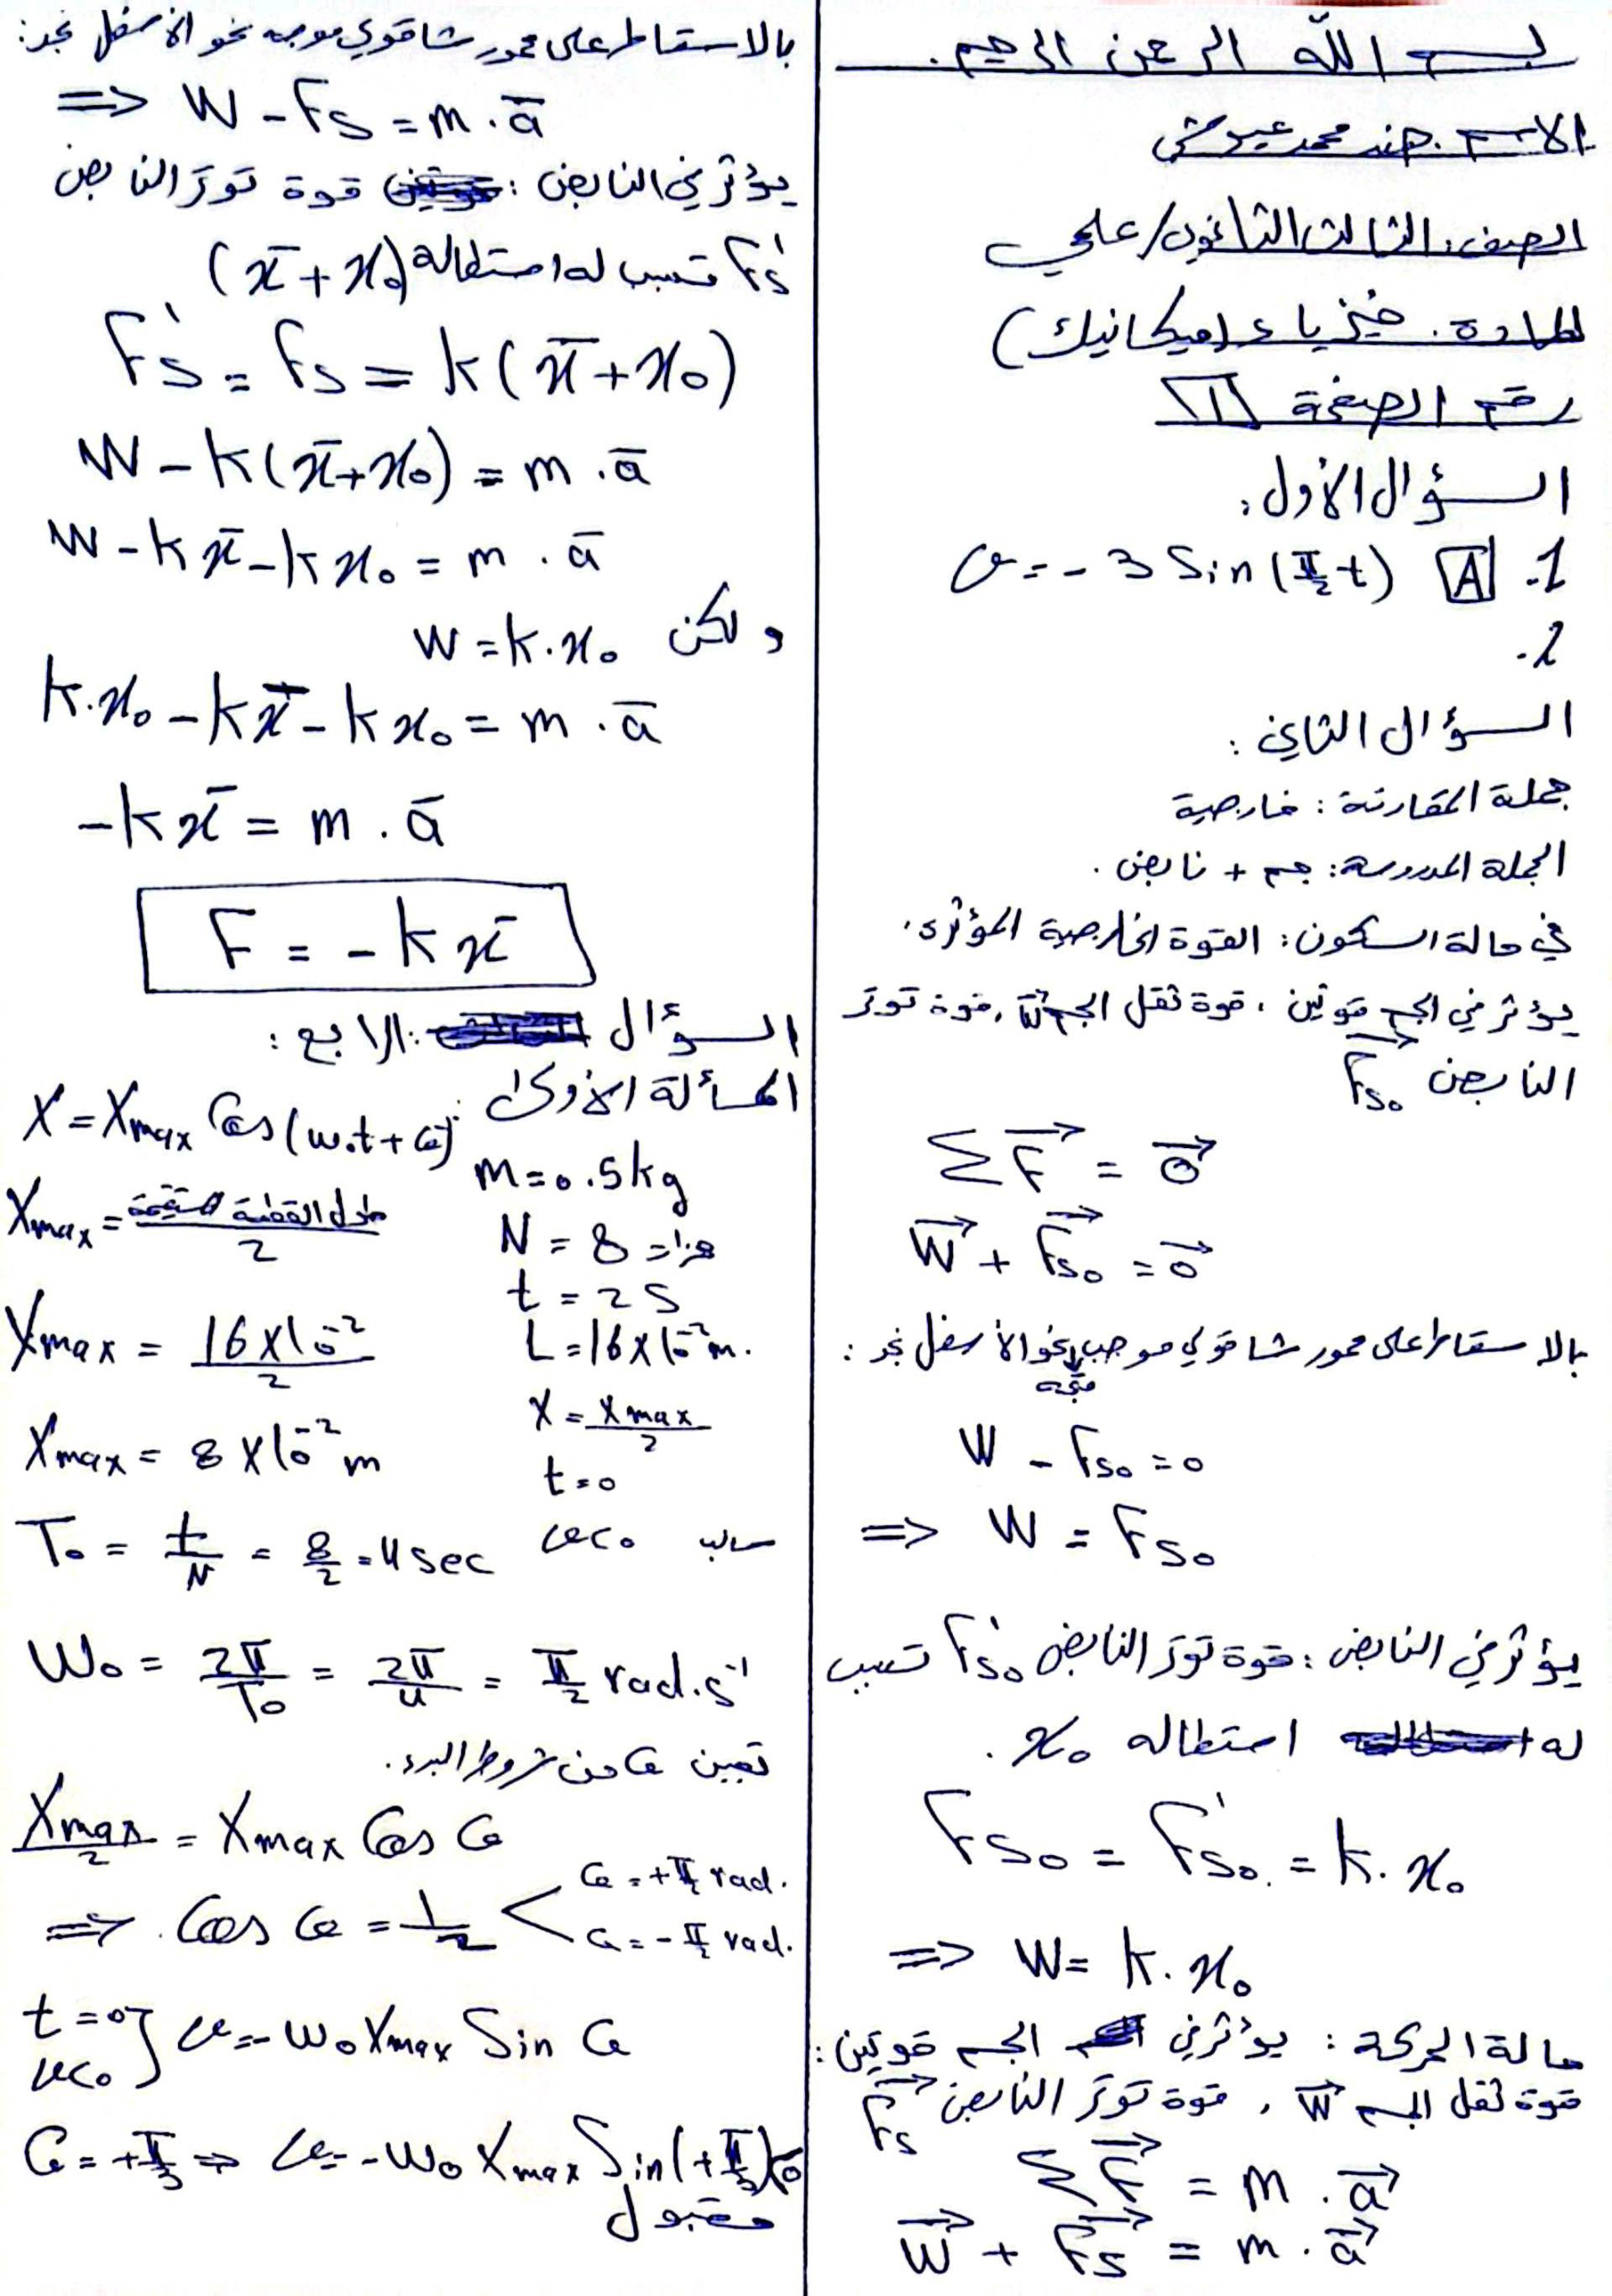 بسم الله الرحمن الرحيم.
الاسم. هند محمد عيوش
الصف: الثالث الثانوي/علمي
المادة. فيزياء (ميكانيك)
رقم الصفحة 1
السؤال الأول:
1. A v = - 3 Sin (π/2 t)
2.
السؤال الثاني:
جملة المقارنة: خارجية
الجملة المدروسة: جسم + نابض.
في حالة السكون: القوة الخارجية المؤثرة.
يؤثر في الجسم قوتين، قوة ثقل الجسم W⃗، قوة توتر
النابض F⃗s₀
ΣF⃗ = 0⃗
W⃗ + F⃗s₀ = 0⃗
بالاسقاط على محور شاقولي موجب نحو الأسفل نجد:
متجه
W - Fs₀ = 0
=> W = Fs₀
يؤثر في النابض: قوة توتر النابض F's₀ تسبب
له استطالة x₀.
Fs₀ = F's₀. = k. x₀
=> W = k. x₀
حالة الحركة: يؤثر في الجسم قوتين:
قوة ثقل الجسم W⃗، قوة توتر النابض F⃗s
ΣF⃗ = m . a⃗
W⃗ + F⃗s = m . a⃗
بالاسقاط على محور شاقولي موجه نحو الأسفل نجد:
=> W - Fs = m . a̅
يؤثر في النابض: قوة توتر النابض
F's تسبب له استطالة (x̅ + x₀)
F's = Fs = k(x̅ + x₀)
W - k(x̅ + x₀) = m . a̅
W - kx̅ - kx₀ = m . a̅
ولكن W = k.x₀
k.x₀ - kx̅ - kx₀ = m . a̅
-kx̅ = m . a̅
F = - kx̅
السؤال الرابع:
المسألة الأولى:
X = Xmax Cos (ω₀t + φ)
m = 0.5 kg
Xmax = طول القطعة المستقيمة / 2
N = 8 هزات
t = 2 S
Xmax = 16 x 10⁻² / 2
L = 16 x 10⁻² m.
X = Xmax / 2
Xmax = 8 x 10⁻² m
t = 0
T₀ = t/N = 8/2 = 4 sec
v < 0 سالب
ω₀ = 2π/T₀ = 2π/4 = π/2 rad.s⁻¹
تعيين φ من شروط البدء.
Xmax/2 = Xmax Cos φ
=> Cos φ = 1/2 < φ = + π/2 rad.
φ = - π/2 rad.
t = 0 } v = - ω₀ Xmax Sin φ
v < 0
φ = + π/3 => v = - ω₀ Xmax Sin (+ π/3) < 0
مقبول